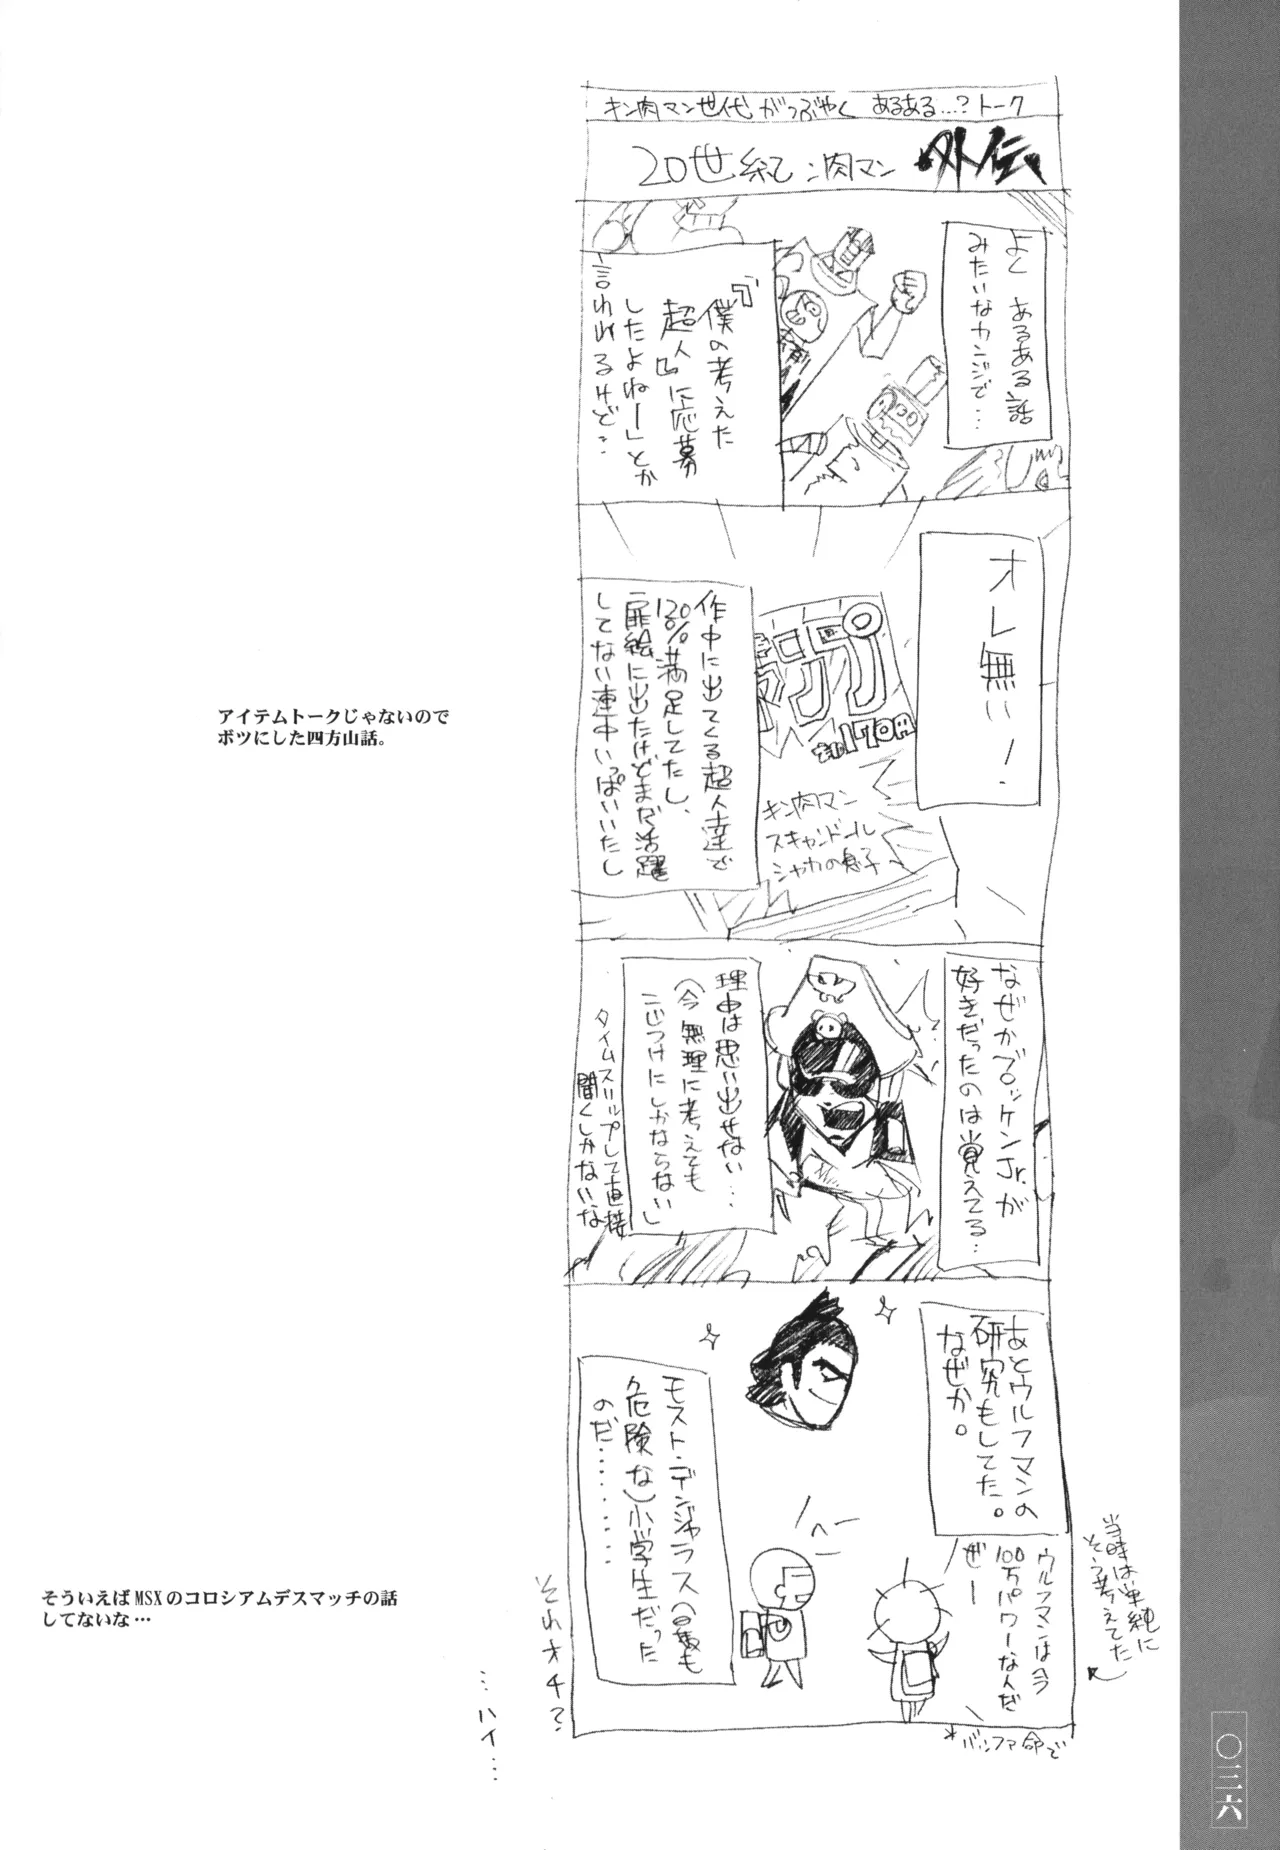 キン肉マン世代がつぶやく あるある…?トーク
20世紀ン肉マン 外伝
よく あるある話
みたいなカンジで…
『僕の考えた
超人』に応募
したよねー」とか
言われるけど‥
オレ無い!
作中に出てくる超人達で
120%満足してたし、
扉絵に出たけどまだ活躍
してない連中いっぱいいたし
170円
キン肉マン
スキャンドール
シャカの息子
なぜかブロッケンJr.が
好きだったのは覚えてる…
理由は思い出せない…
(今無理に考えても
こじつけにしかならない)
タイムスリップして直接
聞くしかないな
あとウルフマンの
研究もしてた。
なぜか。
ウルフマンは今
100万パワーなんだ
ぜー
当時は単純に
そう考えてた
モスト・デンジャラス(最も
危険な)小学生だった
のだ………
へー
*バッファ命で
それオチ?
…ハイ…
アイテムトークじゃないので
ボツにした四方山話。
そういえばMSXのコロシアムデスマッチの話
してないな…
〇三六